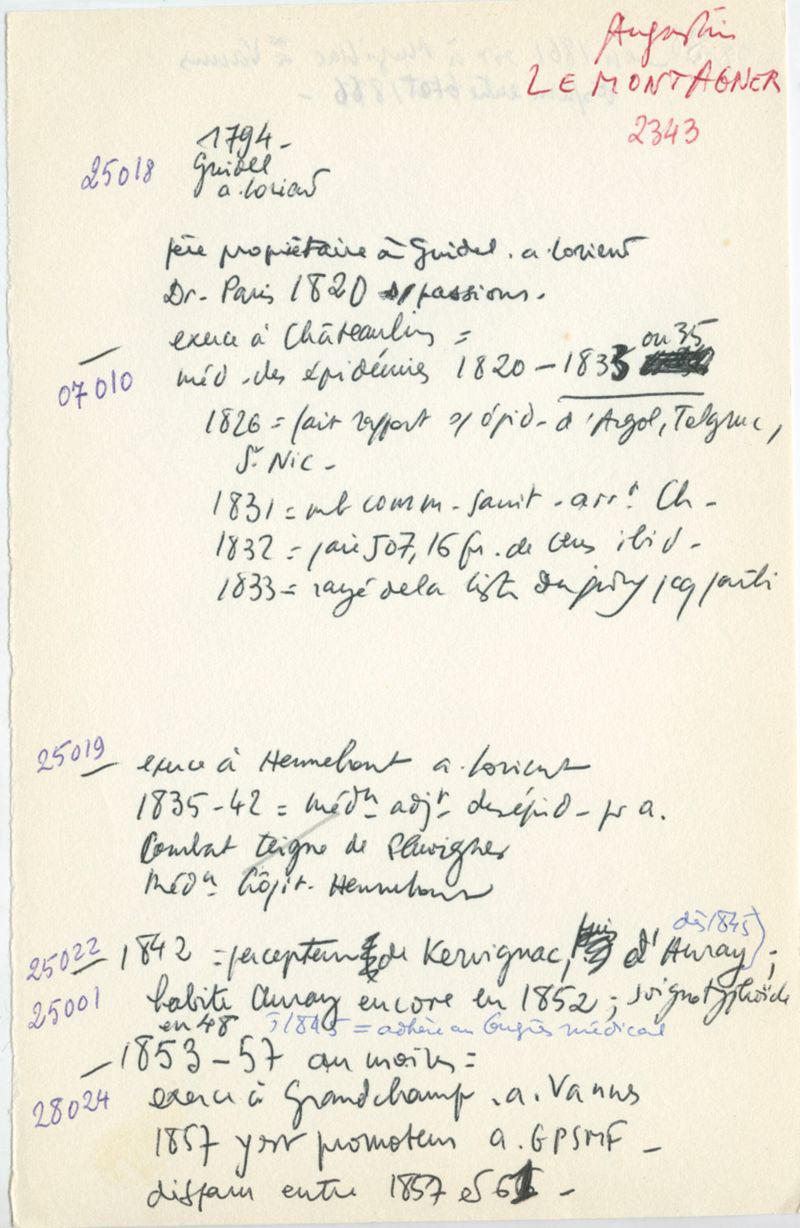 Augustin
LE MONTAGNER
2343
1794 -
25018 Guidel
a. Lorient
père propriétaire à Guidel . a. Lorient
Dr. Paris 1820 s/ passions.
exerce à Châteaulin =
ou 35
07010 méd. des épidémies 1820 - 1833
1826 = fait rapport s/ épid. d'Argol, Telgruc,
St Nic -
1831 = mb comm. sanit. arrt Ch -
1832 = paie 507,16 fr. de cens ibid -
1833 = rayé de la liste du jury
25019 - exerce à Hennebont a. Lorient
1835-42 = médn adjt des épid - pr a.
Combat teigne de Pluvigner
Médn hôpit. Hennebont
dès 1845)
25022 - 1842 = percepteur de Kervignac, puis d'Auray ;
25001 habite Auray encore en 1852 ; soigne typhoïde
en 48 1845 = adhère au Congrès médical
- 1853-57 au moins =
28024 exerce à Grandchamp . a. Vannes
1857 y est promoteur a. GPSMF -
disparu entre 1857 et 61 -